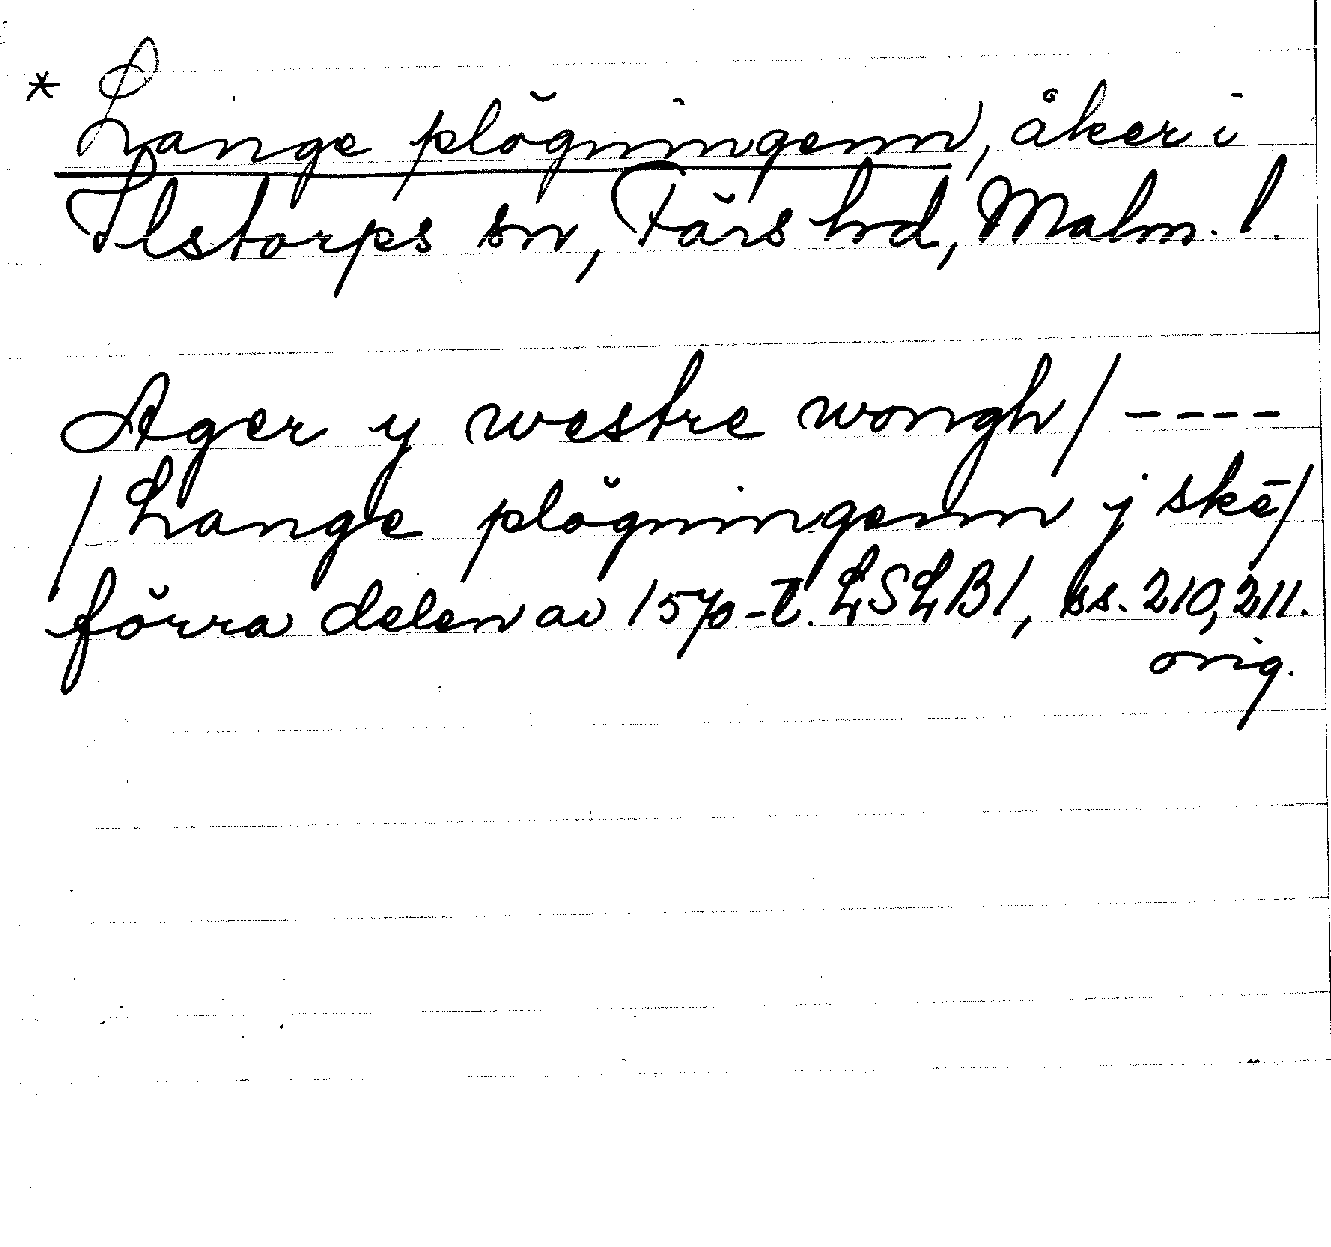 * Lange plögningenn, åker i
Ilstorps sn, Färs hd, Malm. l.
Ager y westre wongh/ ----
/Lange plögningenn j skē/
förra delen av 1570-t. LSLB1, ss. 210, 211.
orig.